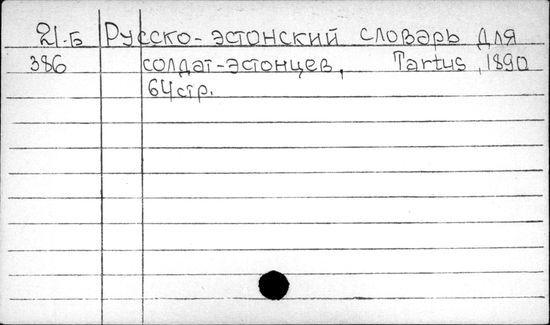 21-Б Русско-эстонский словарь для
386 солдат-эстонцев, Tartus, 1890
64стр.